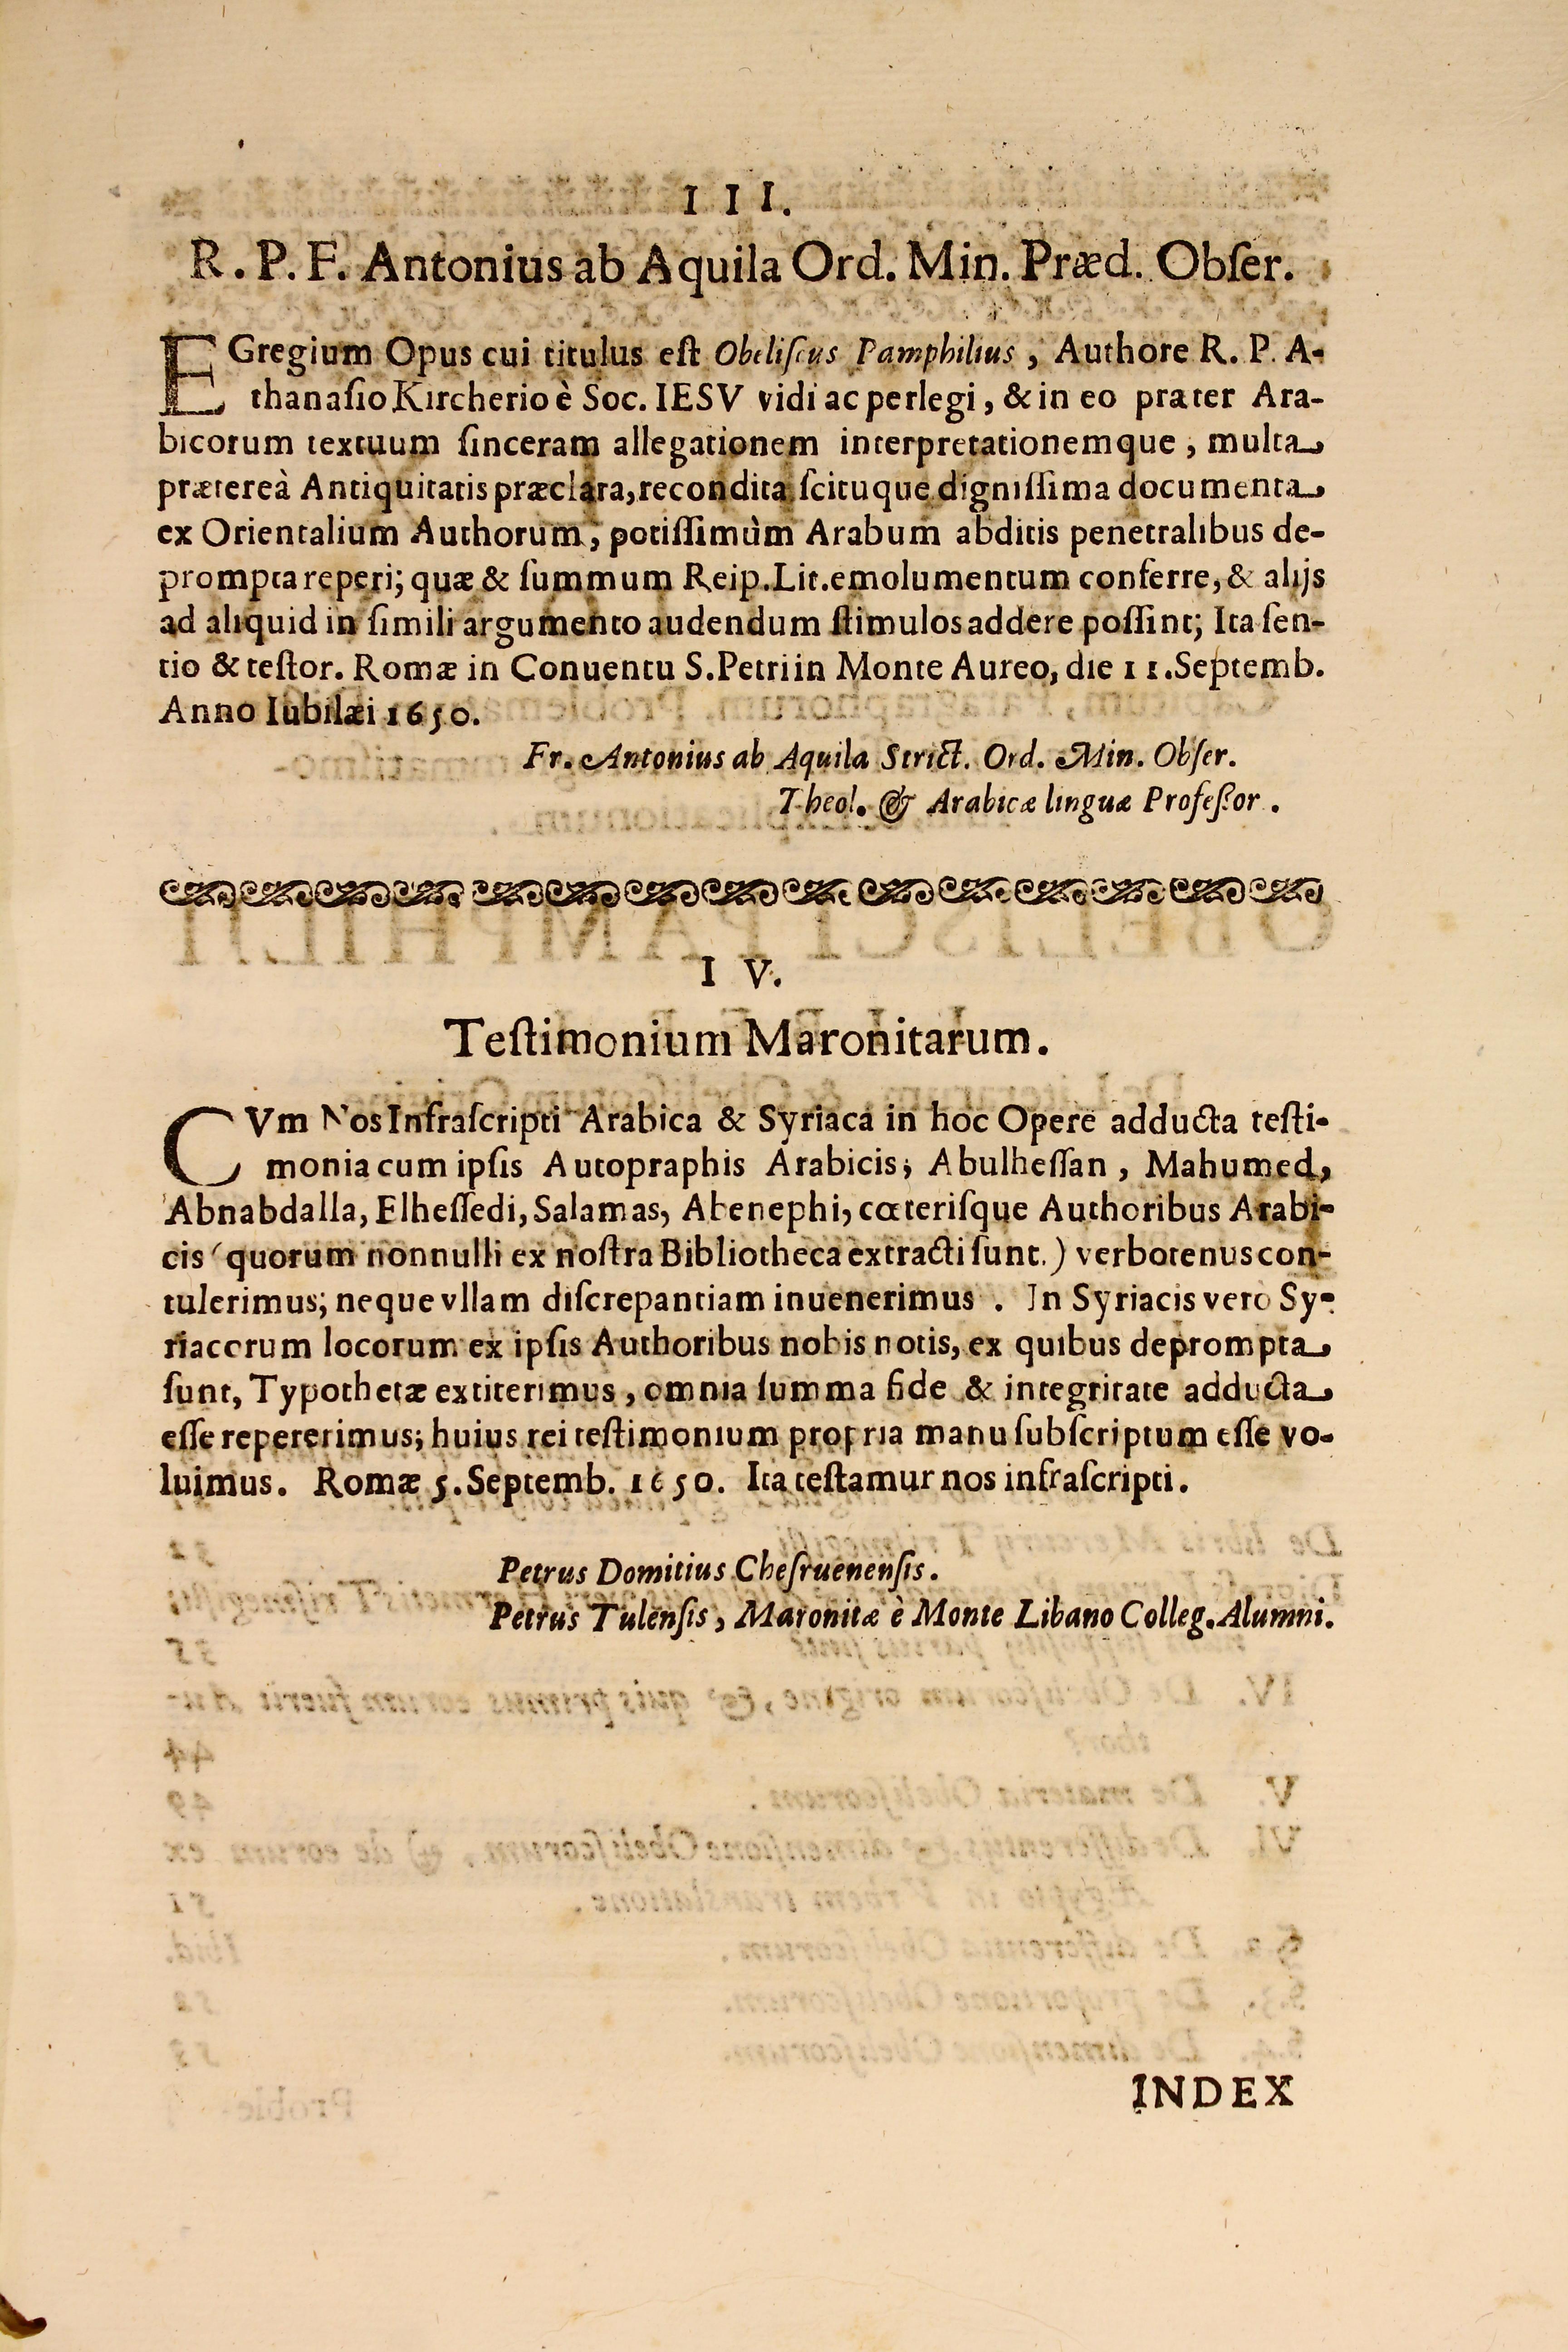 I I I.
R. P. F. Antonius ab Aquila Ord. Min. Præd. Obſer.
EGregium Opus cui titulus eſt Obeliſcus Pamphilius, Authore R. P. A-
thanaſio Kircherio è Soc. IESV vidi ac perlegi, & in eo præter Ara-
bicorum textuum ſinceram allegationem interpretationemque, multa
præterea Antiquitatis præclara, recondita ſcituque digniſſima documenta
ex Orientalium Authorum, potiſſimùm Arabum abditis penetralibus de-
prompta reperi; quæ & ſummum Reip. Lit. emolumentum conferre, & alijs
ad aliquid in ſimili argumento audendum ſtimulos addere poſſint; Ita ſen-
tio & teſtor. Romæ in Conuentu S. Petri in Monte Aureo, die 11. Septemb.
Anno Iubilæi 1650.
Fr. Antonius ab Aquila Strict. Ord. Min. Obſer.
Theol. & Arabicæ linguæ Profeſſor.
I V.
Teſtimonium Maronitarum.
CVm Nos Infraſcripti Arabica & Syriaca in hoc Opere adducta teſti-
monia cum ipſis Autopraphis Arabicis; Abulheſſan, Mahumed,
Abnabdalla, Elheſſedi, Salamas, Abenephi, cœteriſque Authoribus Arabi-
cis (quorum nonnulli ex noſtra Bibliotheca extracti ſunt.) verbotenus con-
tulerimus; neque vllam diſcrepantiam inuenerimus. In Syriacis vero Sy-
riacorum locorum ex ipſis Authoribus nobis notis, ex quibus deprompta
ſunt, Typothetæ extiterimus, omnia ſumma fide & integritate adducta
eſſe repererimus; huius rei teſtimonium propria manu ſubſcriptum eſſe vo-
luimus. Romæ 5. Septemb. 1650. Ita teſtamur nos infraſcripti.
Petrus Domitius Cheſruenenſis.
Petrus Tulenſis, Maronitæ è Monte Libano Colleg. Alumni.
INDEX